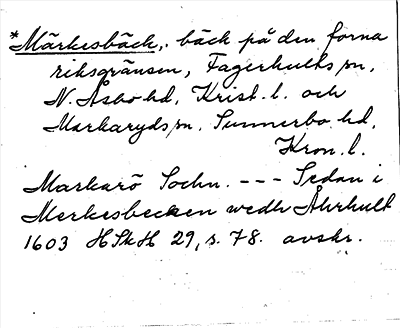 *Märkesbäck, bäck på den forna
riksgränsen, Fagerhults sn,
N. Åsbo hd, Krist. l. och
Markaryds sn. Sunnerbo hd,
Kron. l.
Markarö Sochn. --- Sedan i
Merkesbecken wedh Åhrhult
1603 HSkH 29, s. 78. avskr.